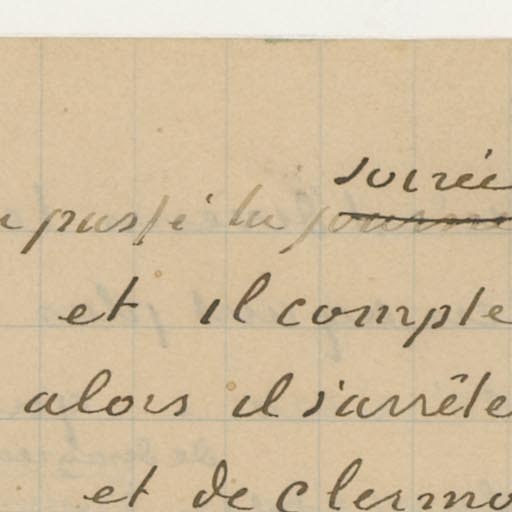 soirée
a passé la journé
et il compte
alors il s'arrête
et de clermo